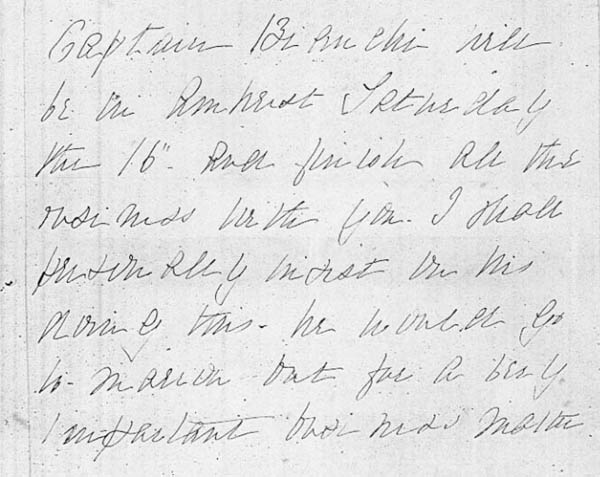 Captain Bianchi will
be in Amherst Saturday
the 16" and finish all the
business with you. I shall
personally insist on his
doing this - he would go
to Marion but for a very
important business matter